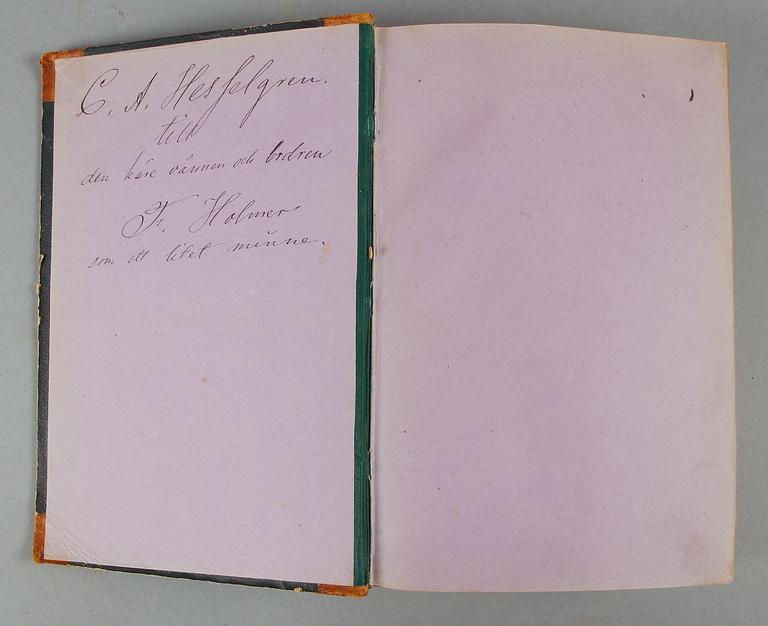 C. A. Hesselgren.
till
den käre vännen och brdren
F. Holmer
som ett litet minne.